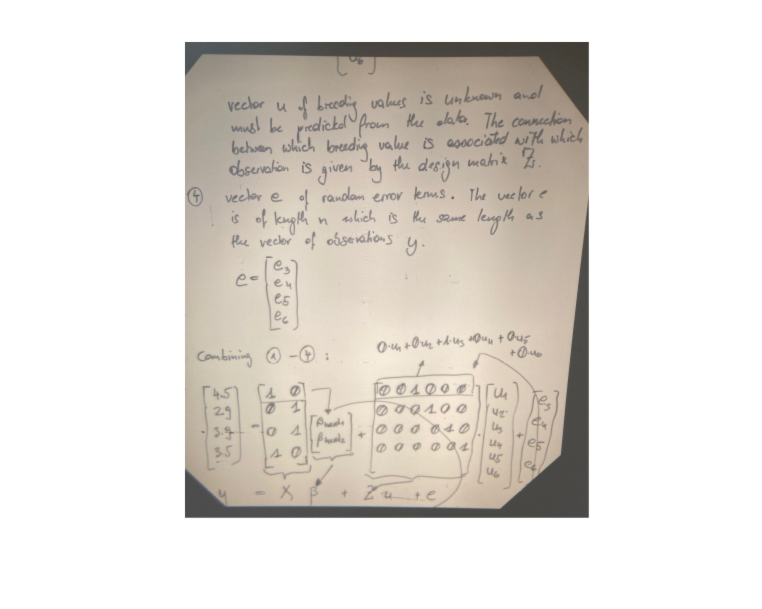 [u6]
vector u of breeding values is unknown and
must be predicted from the data. The connection
between which breeding value is associated with which
observation is given by the design matrix Z.
④ vector e of random error terms. The vector e
is of length n which is the same length as
the vector of observations y.
e = [e3
e4
e5
e6]
0·u1 + 0·u2 + 1·u3 + 0·u4 + 0·u5
+ 0·u6
Combining ① - ④ :
[4.5] = [1 0] [0 0 1 0 0 0] [u1] [e3]
[2.9] [0 1] [0 0 0 1 0 0] [u2] [e4]
[3.9] [0 1] + [0 0 0 0 1 0] · [u3] + [e5]
[3.5] [1 0] [0 0 0 0 0 1] [u4] [e6]
[u5]
[u6]
y = X β + Z·u + e